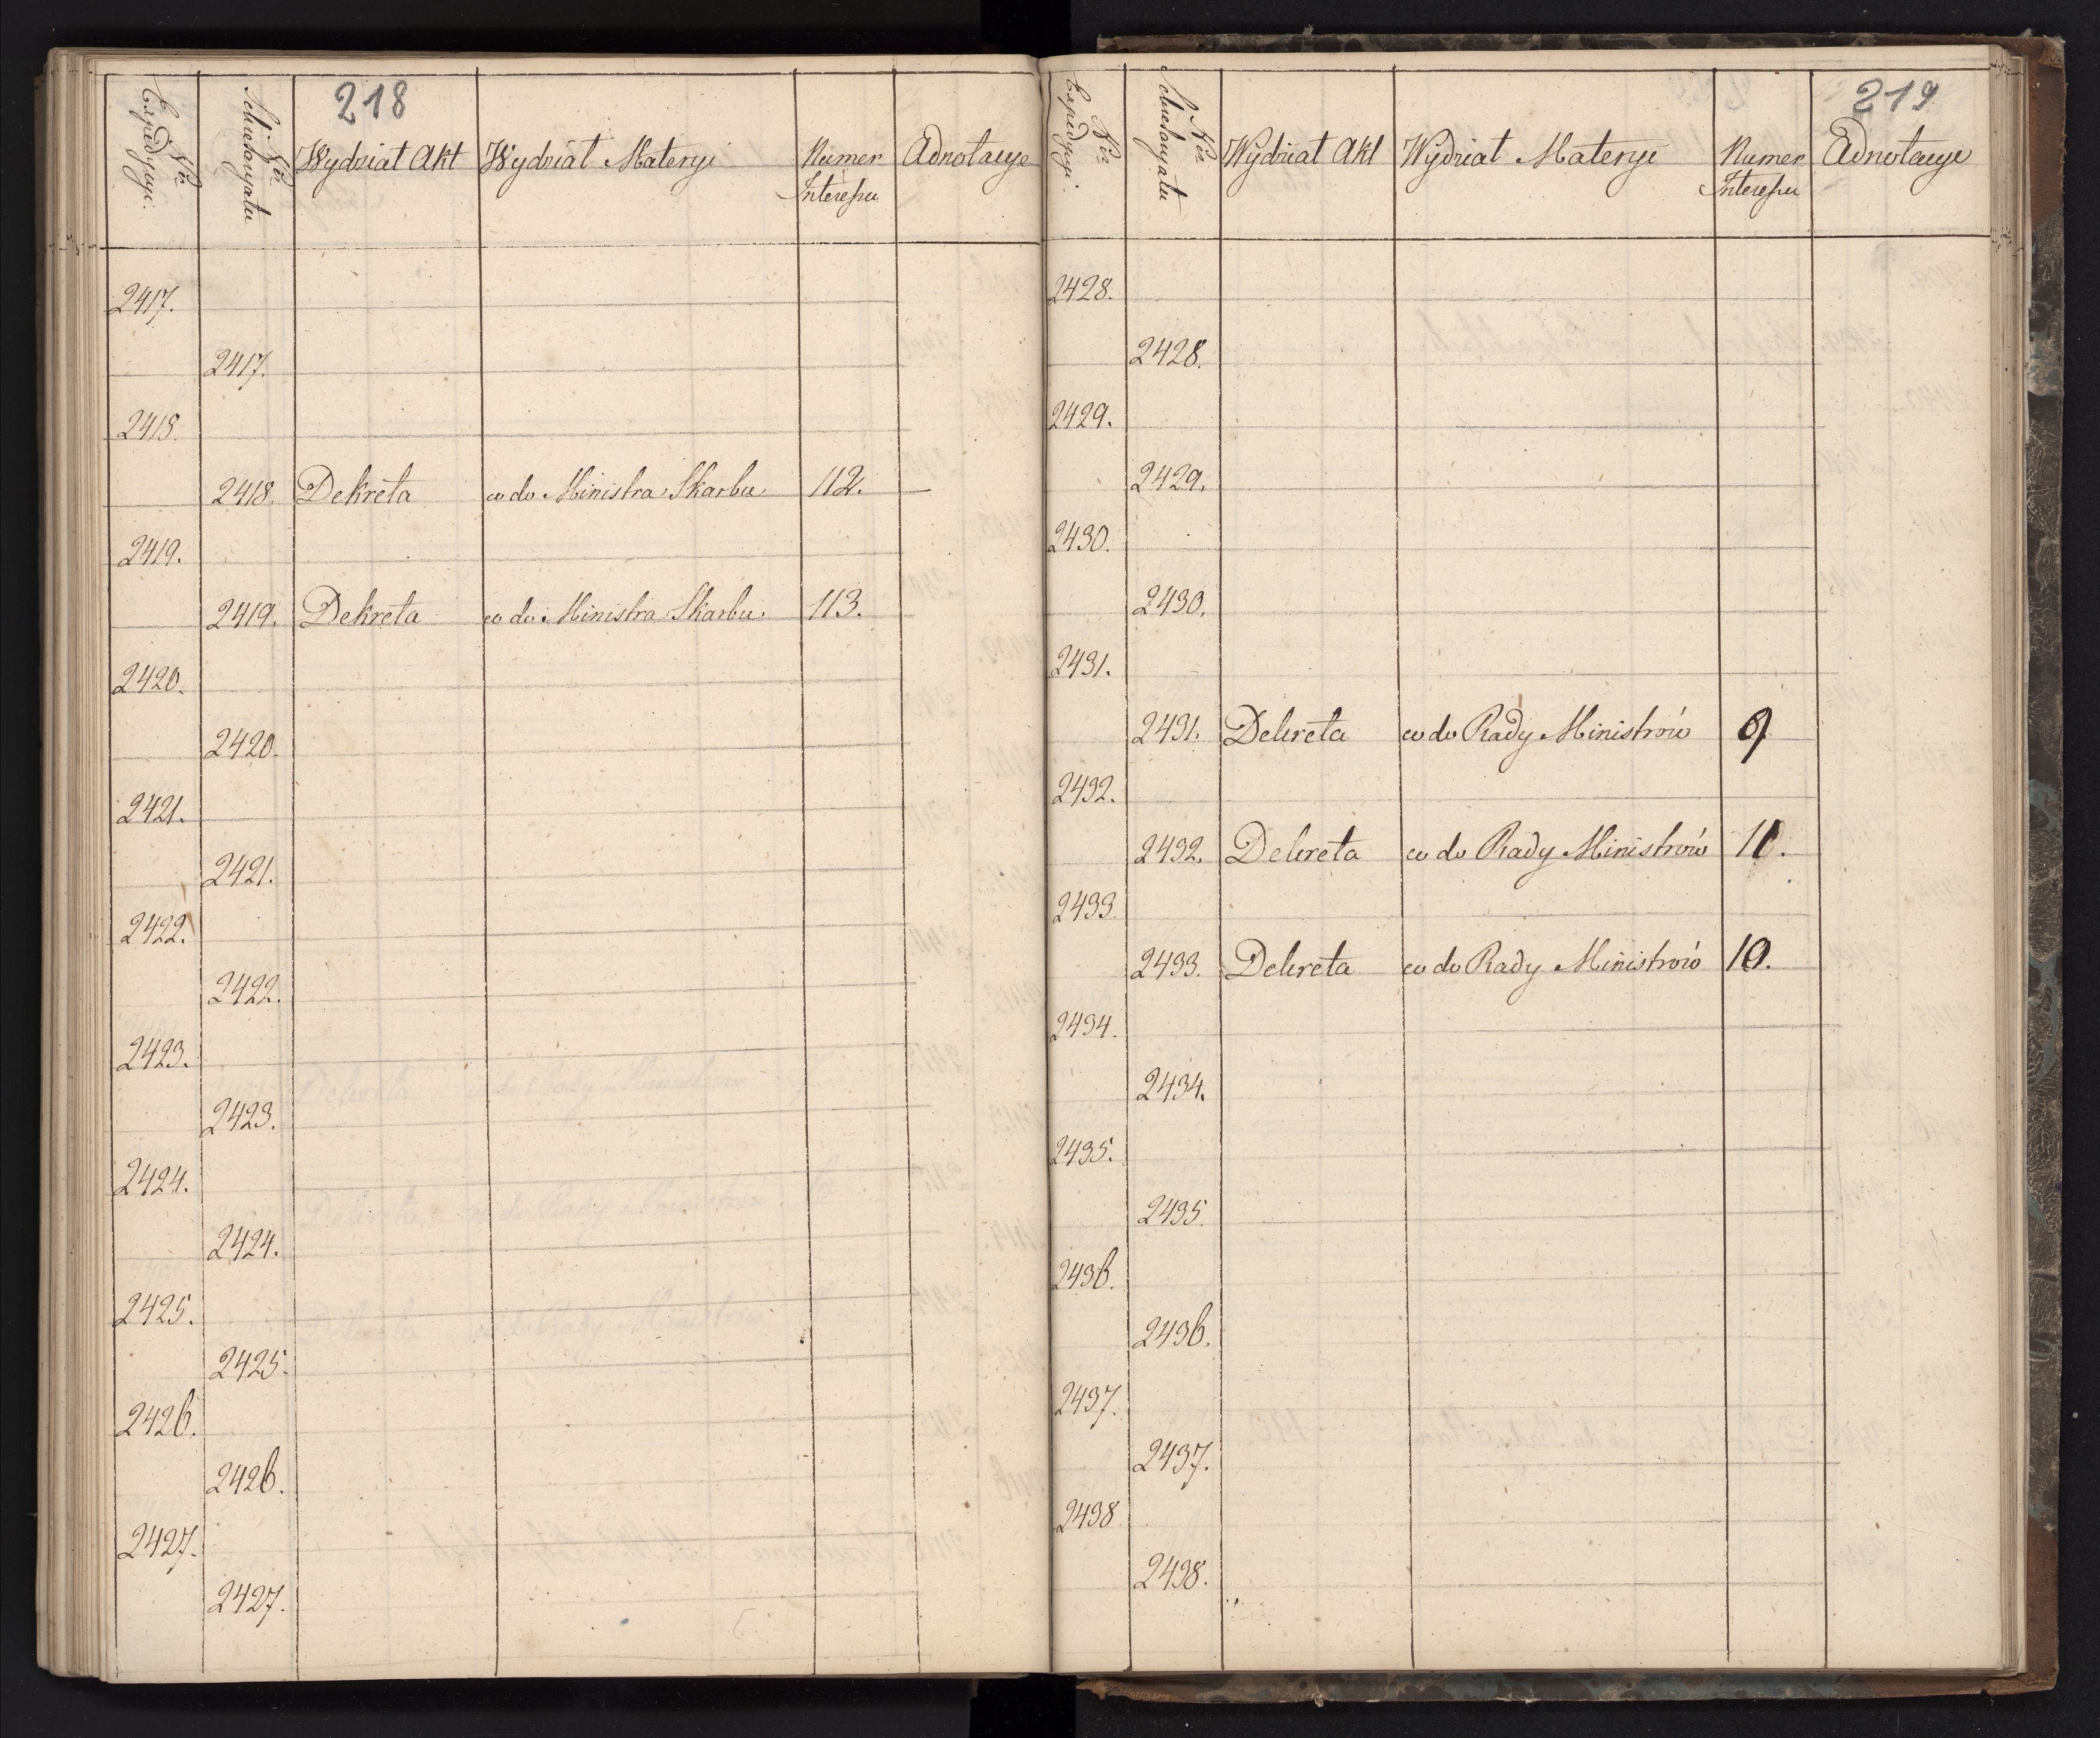 218
Nro Expedycyi.
Nro Sekretaryatu
Wydział Akt
Wydział Materyi
Numer Interessu
Adnotacye
2417.
2417.
2418.
2418. Dekreta co do Ministra Skarbu 112. —
2419.
2419. Dekreta co do Ministra Skarbu 113.
2420.
2420.
2421.
2421.
2422.
2422.
2423.
2423.
2424.
2424.
2425.
2425.
2426.
2426.
2427.
2427.
219
Nro Expedycyi.
Nro Sekretaryatu
Wydział Akt
Wydział Materyi
Numer Interessu
Adnotacye
2428.
2428.
2429.
2429.
2430.
2430.
2431.
2431. Dekreta co do Rady Ministrów 9
2432.
2432. Dekreta co do Rady Ministrów
2433.
2433. Dekreta co do Rady Ministrów 10.
2434.
2434.
2435.
2435
2436.
2436.
2437.
2437.
2438
2438.